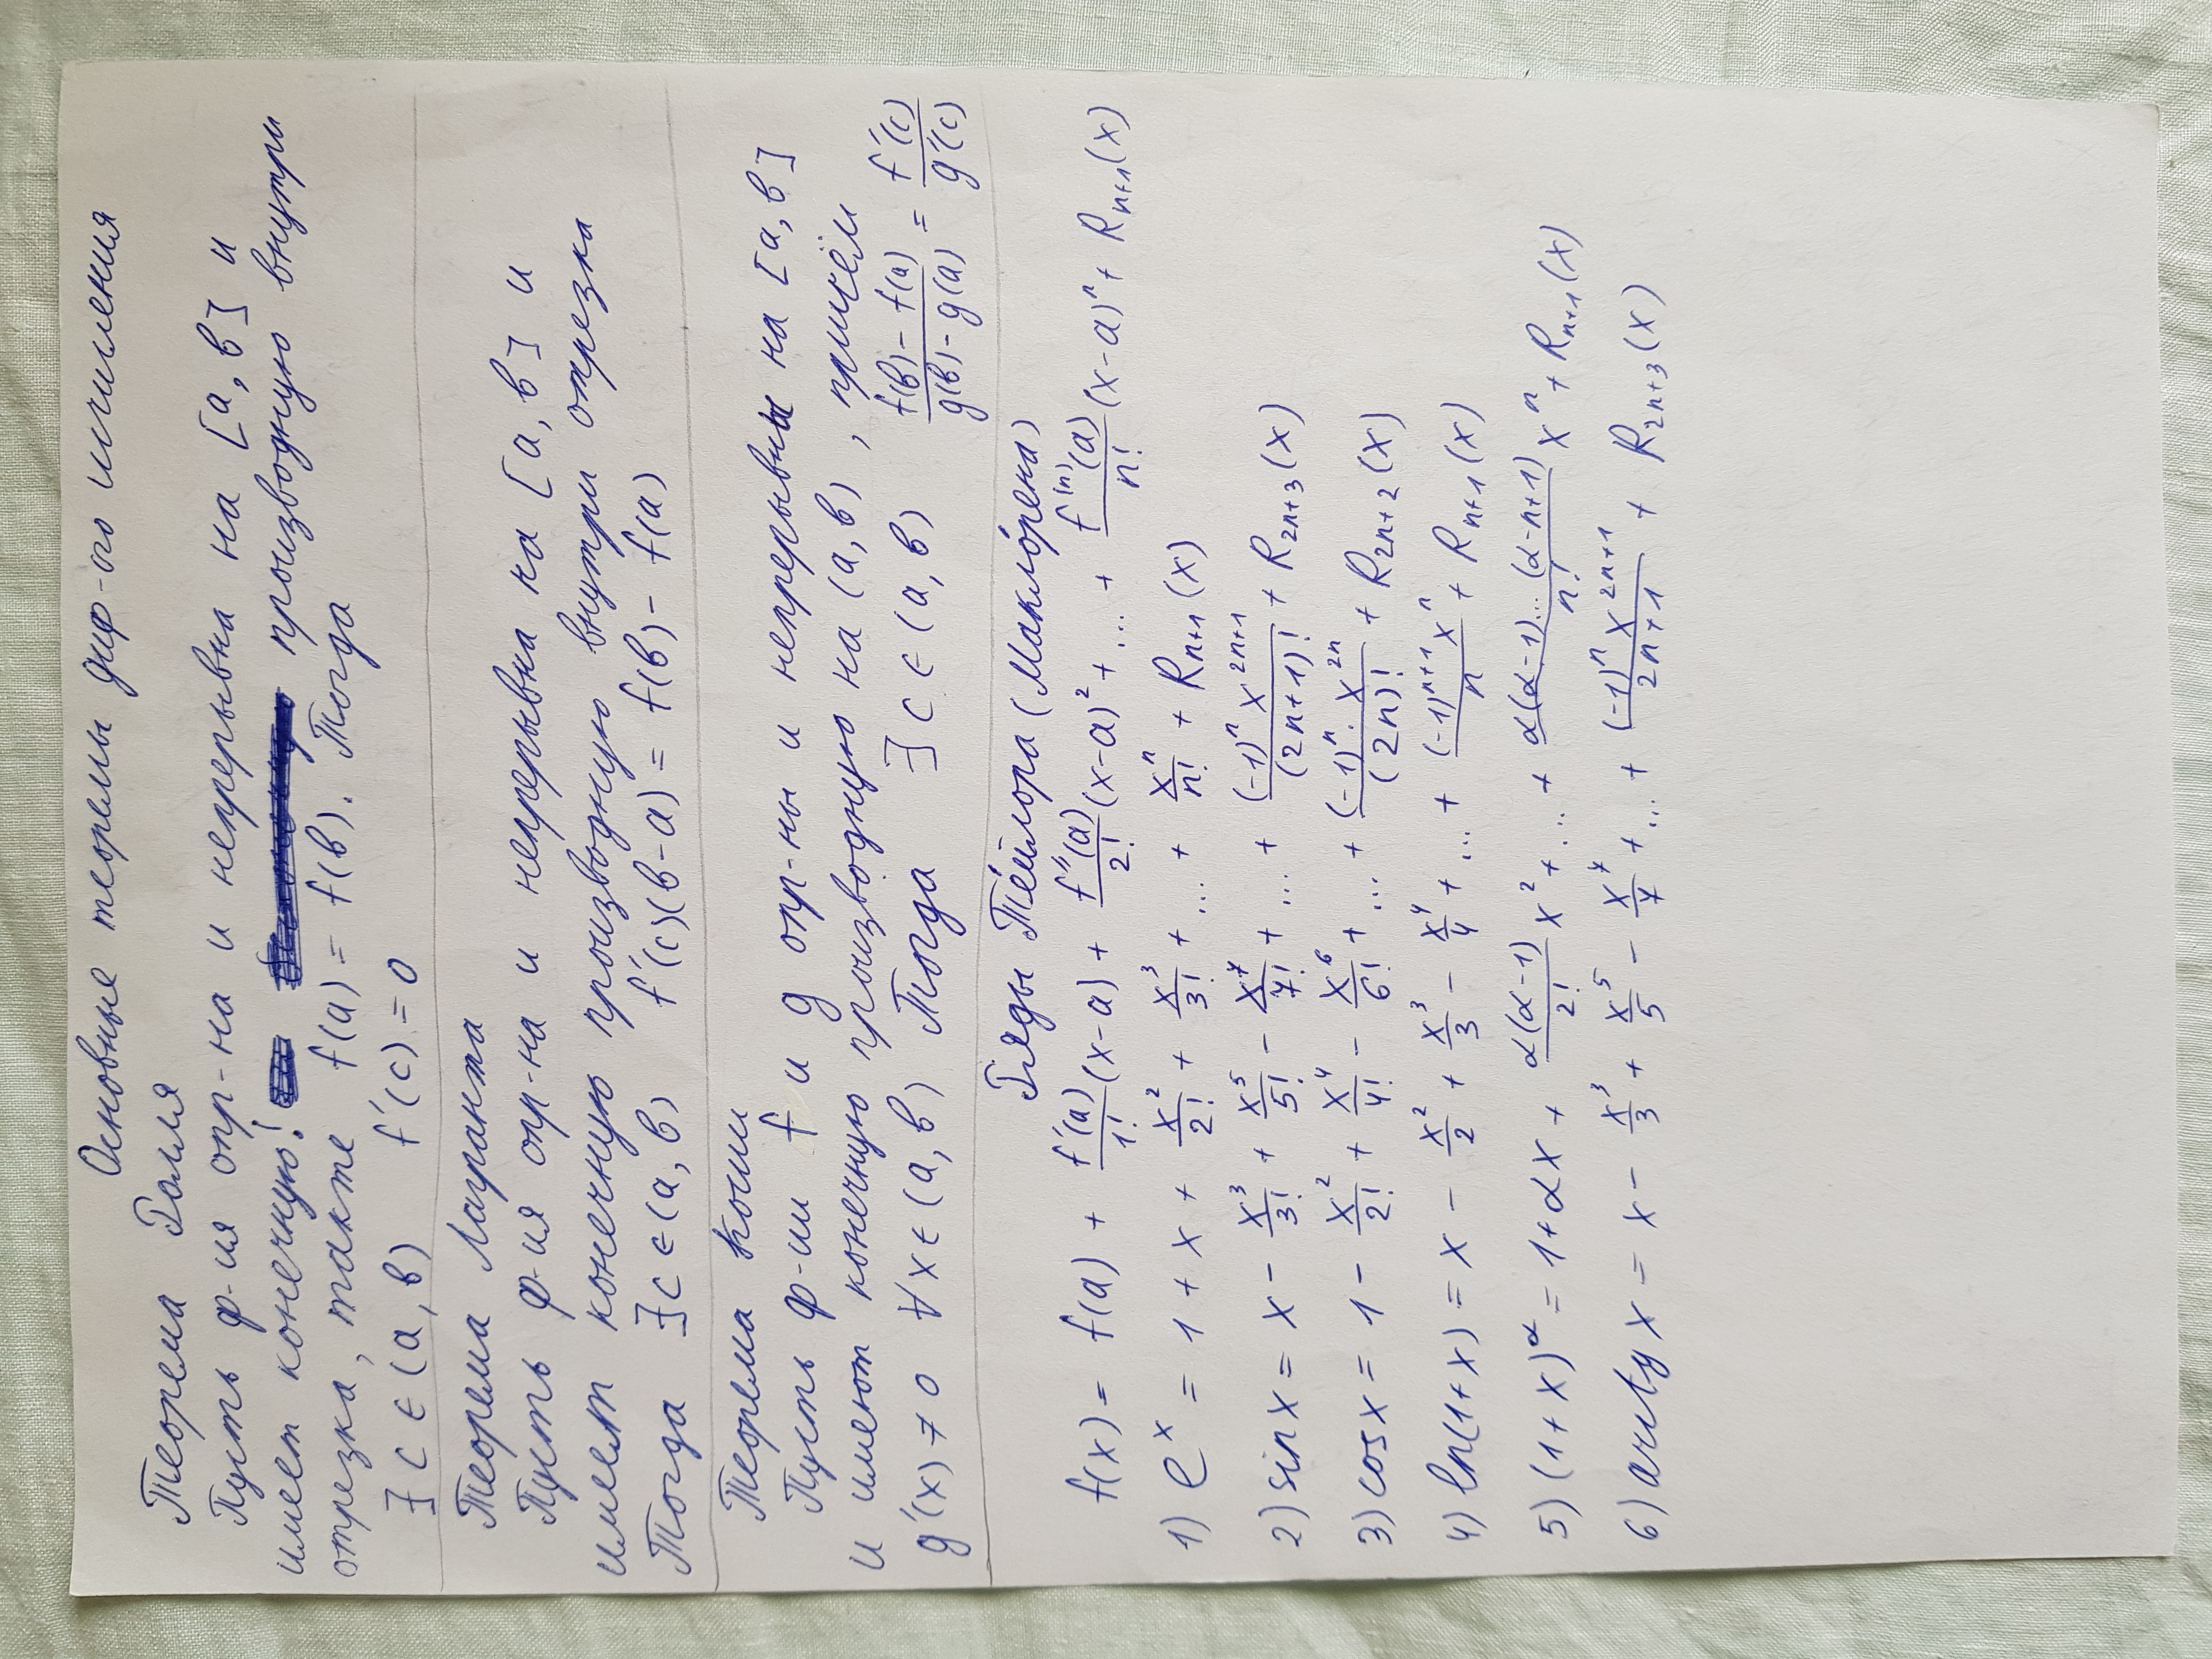 Основные теоремы диф-ого исчисления
Теорема Ролля
Пусть ф-ия опр-на и непрерывна на [a, b] и
имеет конечную! производную внутри
отрезка, также f(a) = f(b). Тогда
∃ c ∈ (a, b) f'(c) = 0
Теорема Лагранжа
Пусть ф-ия опр-на и непрерывна на [a, b] и
имеет конечную производную внутри отрезка
Тогда ∃ c ∈ (a, b) f'(c)(b-a) = f(b) - f(a)
Теорема Коши
Пусть ф-ии f и g опр-ны и непрерывны на [a, b]
и имеют конечную производную на (a, b), причём
g'(x) ≠ 0 ∀x ∈ (a, b) Тогда ∃ c ∈ (a, b) \frac{f(b) - f(a)}{g(b) - g(a)} = \frac{f'(c)}{g'(c)}
Ряды Тéйлора (Маклóрена)
f(x) = f(a) + \frac{f'(a)}{1!}(x-a) + \frac{f''(a)}{2!}(x-a)² + ... + \frac{f^{(n)}(a)}{n!}(x-a)^n + R_{n+1}(x)
1) e^x = 1 + x + \frac{x^2}{2!} + \frac{x^3}{3!} + ... + \frac{x^n}{n!} + R_{n+1}(x)
2) sin x = x - \frac{x^3}{3!} + \frac{x^5}{5!} - \frac{x^7}{7!} + ... + \frac{(-1)^n x^{2n+1}}{(2n+1)!} + R_{2n+3}(x)
3) cos x = 1 - \frac{x^2}{2!} + \frac{x^4}{4!} - \frac{x^6}{6!} + ... + \frac{(-1)^n · x^{2n}}{(2n)!} + R_{2n+2}(x)
4) ln(1+x) = x - \frac{x^2}{2} + \frac{x^3}{3} - \frac{x^4}{4} + ... + \frac{(-1)^{n+1} x^n}{n} + R_{n+1}(x)
5) (1+x)^α = 1 + αx + \frac{α(α-1)}{2!} x² + ... + \frac{α(α-1)...(α-n+1)}{n!} x^n + R_{n+1}(x)
6) arctg x = x - \frac{x^3}{3} + \frac{x^5}{5} - \frac{x^7}{7} + ... + \frac{(-1)^n x^{2n+1}}{2n+1} + R_{2n+3}(x)